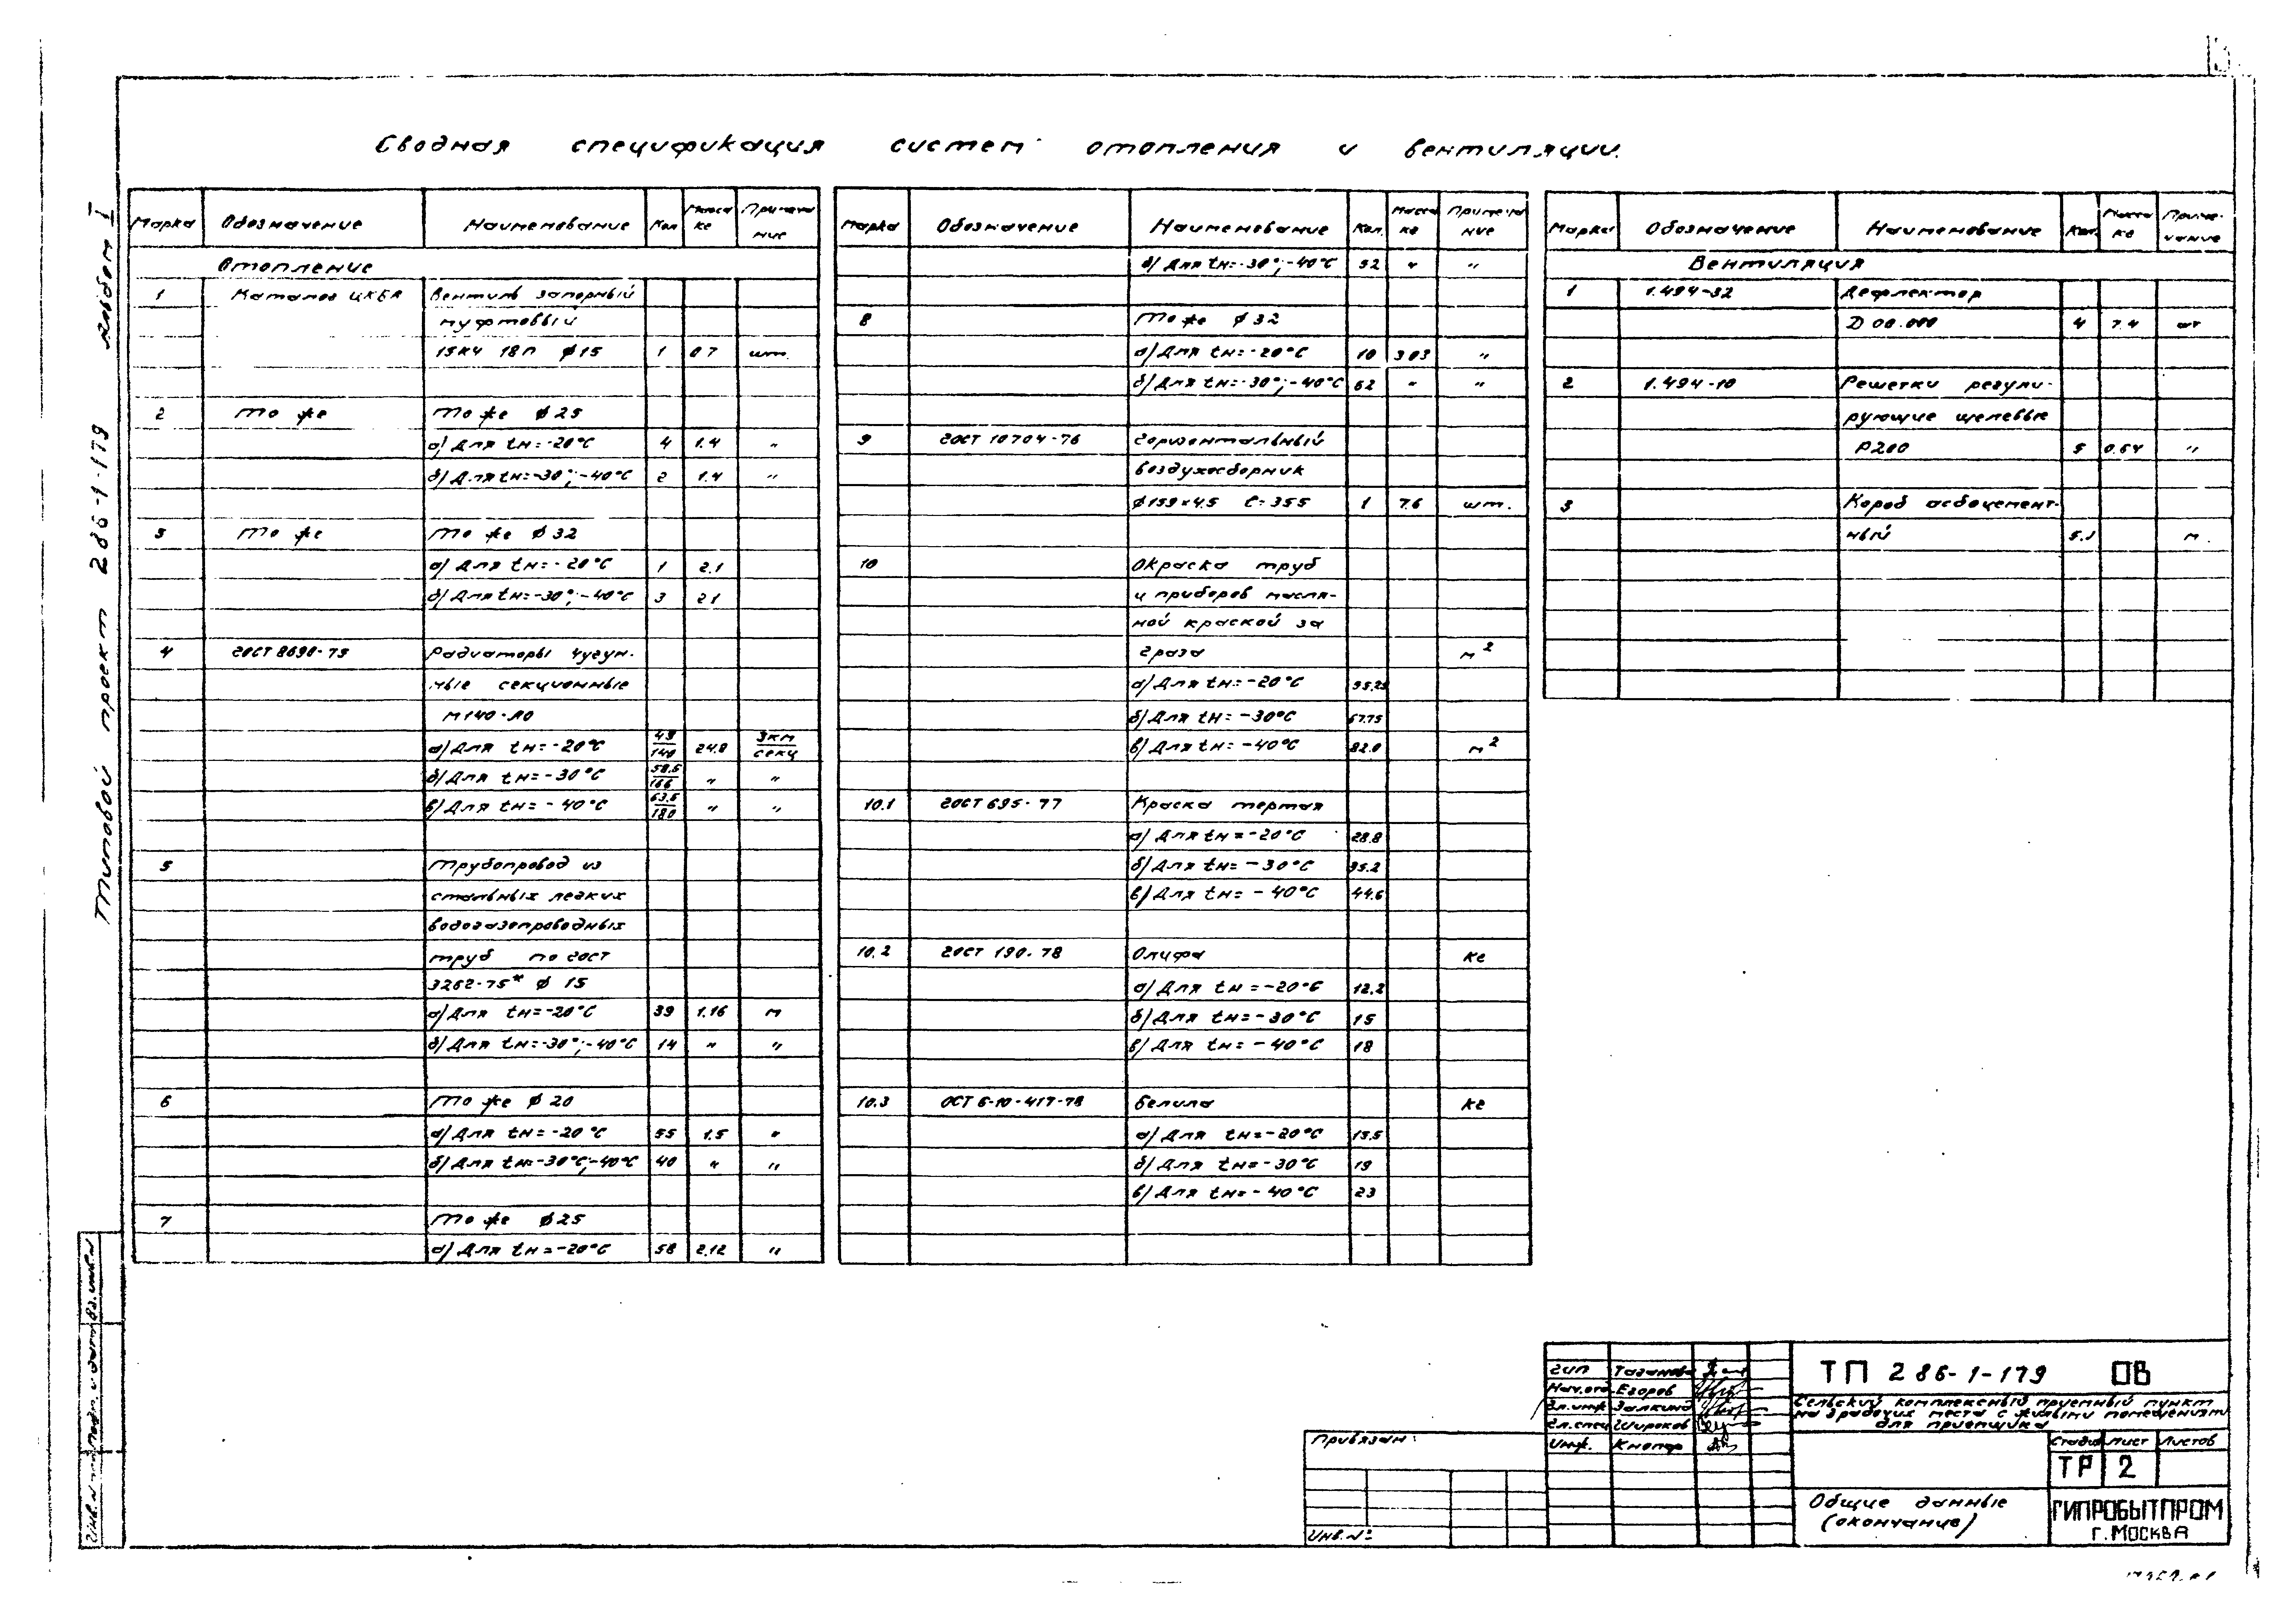 Сводная спецификация систем отопления и вентиляции.
Типовой проект 286-1-179 альбом I
Марка Обозначение Наименование Кол Масса кг Примечание
Отопление
1 Каталог ЦКБА Вентиль запорный
муфтовый
15кч 18п ø15 1 0.7 шт.
2 То же То же ø25
а) Для tн=-20°С 4 1.4 "
б) Для tн=-30°;-40°С 2 1.4 "
3 То же То же ø32
а) Для tн=-20°С 1 2.1
б) Для tн=-30°;-40°С 3 2.1
4 ГОСТ 8690-75 Радиаторы чугун-
ные секционные
М140-АО
а) Для tн=-20°С 49/140 24.8 экм/секц
б) Для tн=-30°С 58.5/166 " "
в) Для tн=-40°С 63.6/180 " "
5 Трубопровод из
стальных легких
водогазопроводных
труб по ГОСТ
3262-75* ø 15
а) Для tн=-20°С 39 1.16 м
б) Для tн=-30°;-40°С 14 " "
6 То же ø 20
а) Для tн=-20°С 55 1.5 "
б) Для tн=-30°С;-40°С 40 " "
7 То же ø25
а) Для tн=-20°С 58 2.12 "
Марка Обозначение Наименование Кол. Масса кг Примечание
б) Для tн=-30°;-40°С 52 " "
8 То же ø 32
а) Для tн=-20°С 10 3.03 "
б) Для tн=-30°;-40°С 62 " "
9 ГОСТ 10704-76 Горизонтальный
воздухосборник
ø159×4.5 ℓ=355 1 7.6 шт.
10 Окраска труб
и приборов масля-
ной краской за
2 раза м²
а) Для tн=-20°С 55.25
б) Для tн=-30°С 67.75
в) Для tн=-40°С 82.0 м²
10.1 ГОСТ 695-77 Краска тертая
а) Для tн=-20°С 28.8
б) Для tн=-30°С 35.2
в) Для tн=-40°С 44.6
10.2 ГОСТ 190-78 Олифа кг
а) Для tн=-20°С 12.2
б) Для tн=-30°С 15
в) Для tн=-40°С 18
10.3 ОСТ 6-10-417-78 Белила кг
а) Для tн=-20°С 15.5
б) Для tн=-30°С 19
в) Для tн=-40°С 23
Марка Обозначение Наименование Кол. Масса кг Примечание
Вентиляция
1 1.494-32 Дефлектор
Д 00.000 4 7.4 шт
2 1.494-10 Решетки регули-
рующие щелевые
Р200 5 0.64 "
3 Короб асбоцемент-
ный 5.1 м.
ГИП
Нач.отд Егоров
Гл.инж Залкинд
Гл.спец Широков
Инж. Кнопф
ТП 286-1-179 ОВ
Сельский комплексный приемный пункт
на 3 рабочих места с жилыми помещениями
для приемщика
Стадия Лист Листов
ТР 2
Общие данные
(окончание)
ГИПРОБЫТПРОМ
г. Москва
Привязан:
Инв.№
Инв.№ подл. Подп. и дата Вз.инв.№